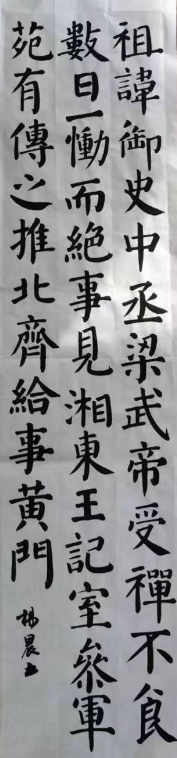 祖諱御史中丞梁武帝受禪不食
數日一慟而絕事見湘東王記室參軍
苑有傳之推北齊給事黃門
楊晨书